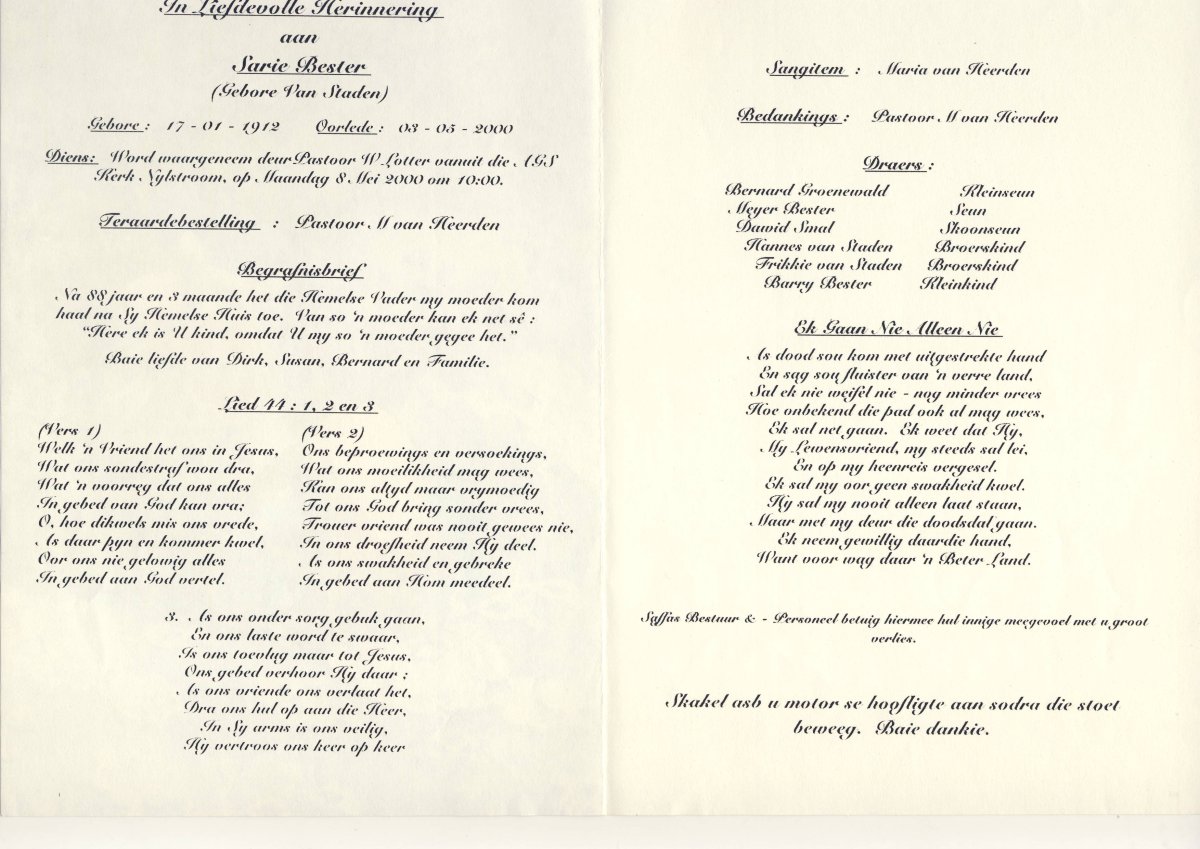 In Liefdevolle Herinnering
aan
Sarie Bester
(Gebore Van Staden)
Gebore : 17 - 01 - 1912 Oorlede : 03 - 05 - 2000
Diens: Word waargeneem deur Pastoor W Lotter vanuit die AGS
Kerk Nylstroom, op Maandag 8 Mei 2000 om 10:00.
Teraardebestelling : Pastoor M van Heerden
Begrafnisbrief
Na 88 jaar en 3 maande het die Hemelse Vader my moeder kom
haal na Sy Hemelse Huis toe. Van so 'n moeder kan ek net sê :
"Here ek is U kind, omdat U my so 'n moeder gegee het."
Baie liefde van Dirk, Susan, Bernard en Familie.
Lied 44 : 1, 2 en 3
(Vers 1)
Welk 'n Vriend het ons in Jesus,
Wat ons sondestraf wou dra,
Wat 'n voorreg dat ons alles
In gebed van God kan vra;
O, hoe dikwels mis ons vrede,
As daar pyn en kommer kwel,
Oor ons nie gelowig alles
In gebed aan God vertel.
(Vers 2)
Ons beproewings en versoekings,
Wat ons moeilikheid mag wees,
Kan ons altyd maar vrymoedig
Tot ons God bring sonder vrees,
Trouer vriend was nooit gewees nie,
In ons droefheid neem Hy deel.
As ons swakheid en gebreke
In gebed aan Hom meedeel.
3. As ons onder sorg gebuk gaan,
En ons laste word te swaar,
Is ons toevlug maar tot Jesus,
Ons gebed verhoor Hy daar ;
As ons vriende ons verlaat het,
Dra ons hul op aan die Heer,
In Sy arms is ons veilig,
Hy vertroos ons keer op keer
Sangitem : Maria van Heerden
Bedankings : Pastoor M van Heerden
Draers :
Bernard Groenewald Kleinseun
Meyer Bester Seun
Dawid Smal Skoonseun
Hannes van Staden Broerskind
Frikkie van Staden Broerskind
Barry Bester Kleinkind
Ek Gaan Nie Alleen Nie
As dood sou kom met uitgestrekte hand
En sag sou fluister van 'n verre land,
Sal ek nie weifel nie - nog minder vrees
Hoe onbekend die pad ook al mag wees,
Ek sal net gaan. Ek weet dat Hy,
My Lewensvriend, my steeds sal lei,
En op my heenreis vergesel.
Ek sal my oor geen swakheid kwel.
Hy sal my nooit alleen laat staan,
Maar met my deur die doodsdal gaan.
Ek neem gewillig daardie hand,
Want voor wag daar 'n Beter Land.
Saffas Bestuur & - Personeel betuig hiermee hul innige meegevoel met u groot
verlies.
Skakel asb u motor se hoofligte aan sodra die stoet
beweeg. Baie dankie.